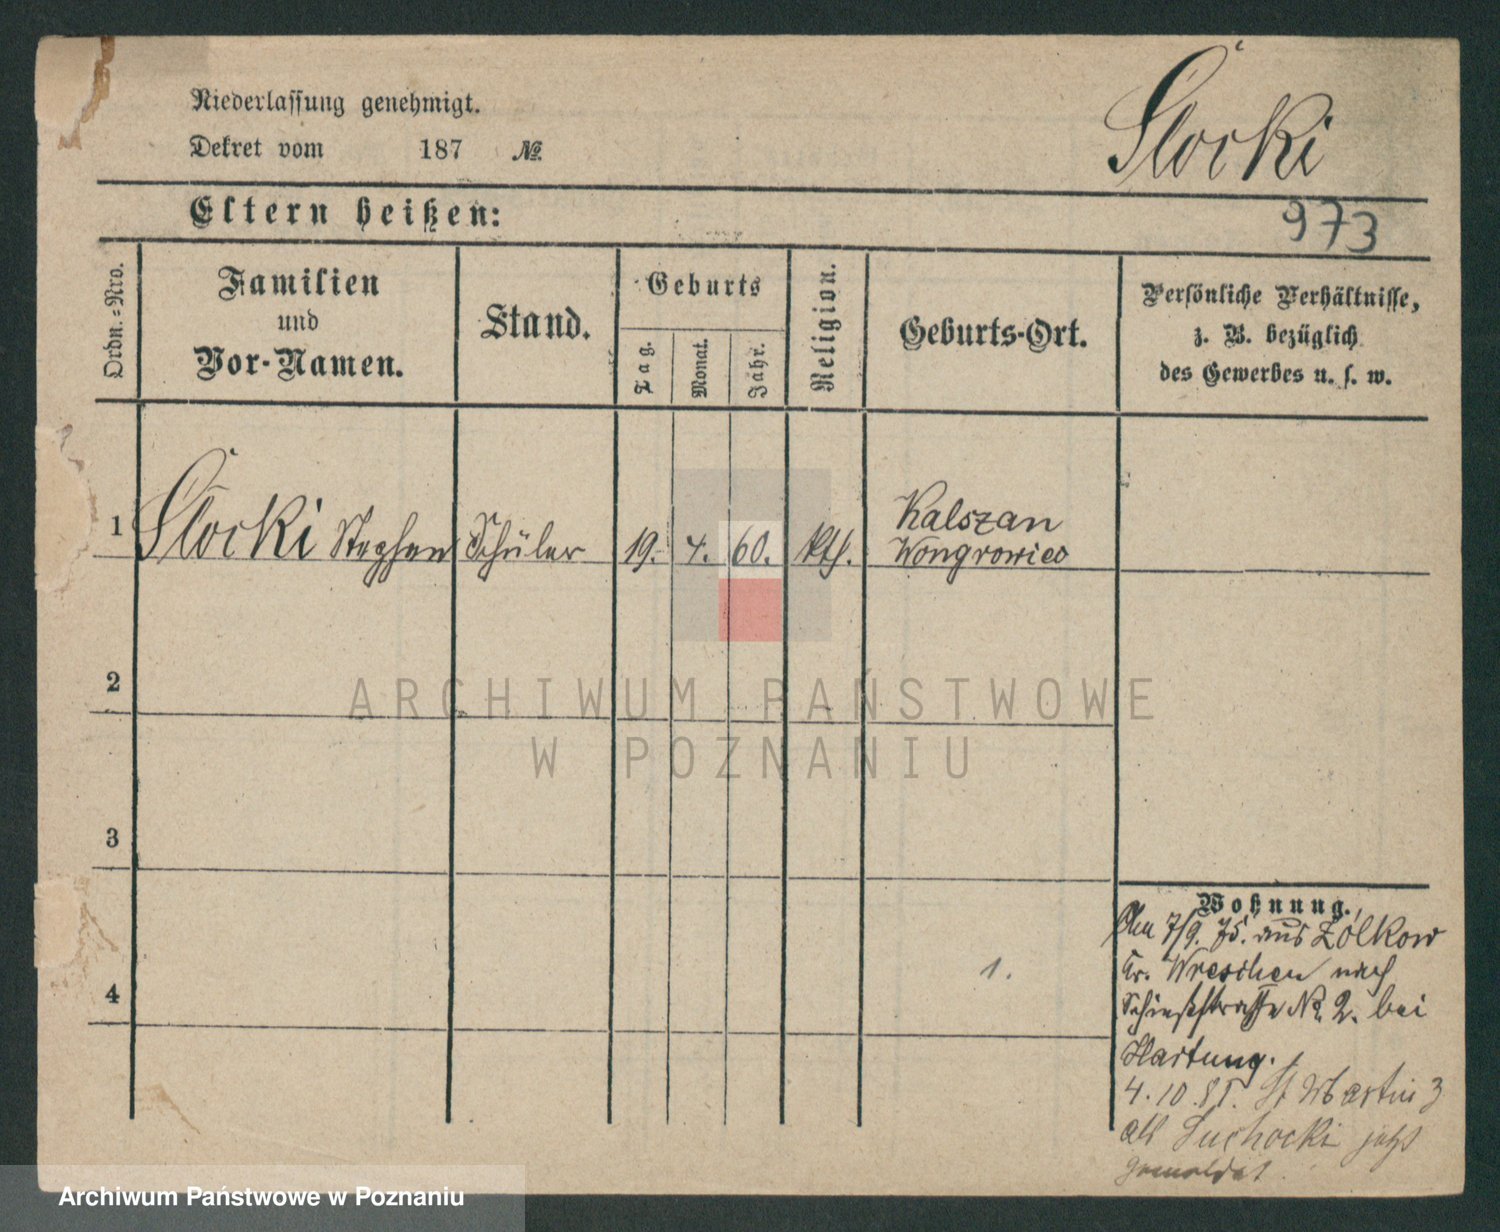 Niederlassung genehmigt.
Dekret vom 187 №
Słocki
973
Eltern heißen:
Ordn.-Nro.
Familien
und
Vor-Namen.
Stand.
Geburts
Tag.
Monat.
Jahr.
Religion.
Geburts-Ort.
Persönliche Verhältnisse,
z. B. bezüglich
des Gewerbes u. s. w.
1 Słocki Stephan Schüler 19. 4. 60. kth. Kalszan
Wongrowiec
2
3
4
1.
Wohnung.
7/9. 75. aus Zolkow
Kr. Wreschen nach
Schießstrasse No. 2. bei
Hartung.
4. 10. 81. St Martin 3
als Suchocki jetzt
gemeldet
ARCHIWUM PAŃSTWOWE
W POZNANIU
Archiwum Państwowe w Poznaniu